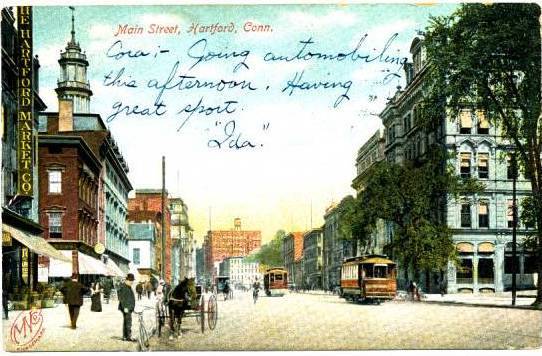 Main Street, Hartford, Conn.
Cora:- Going automobiling
this afternoon. Having
great sport.
"Ida."
THE HARTFORD MARKET CO.